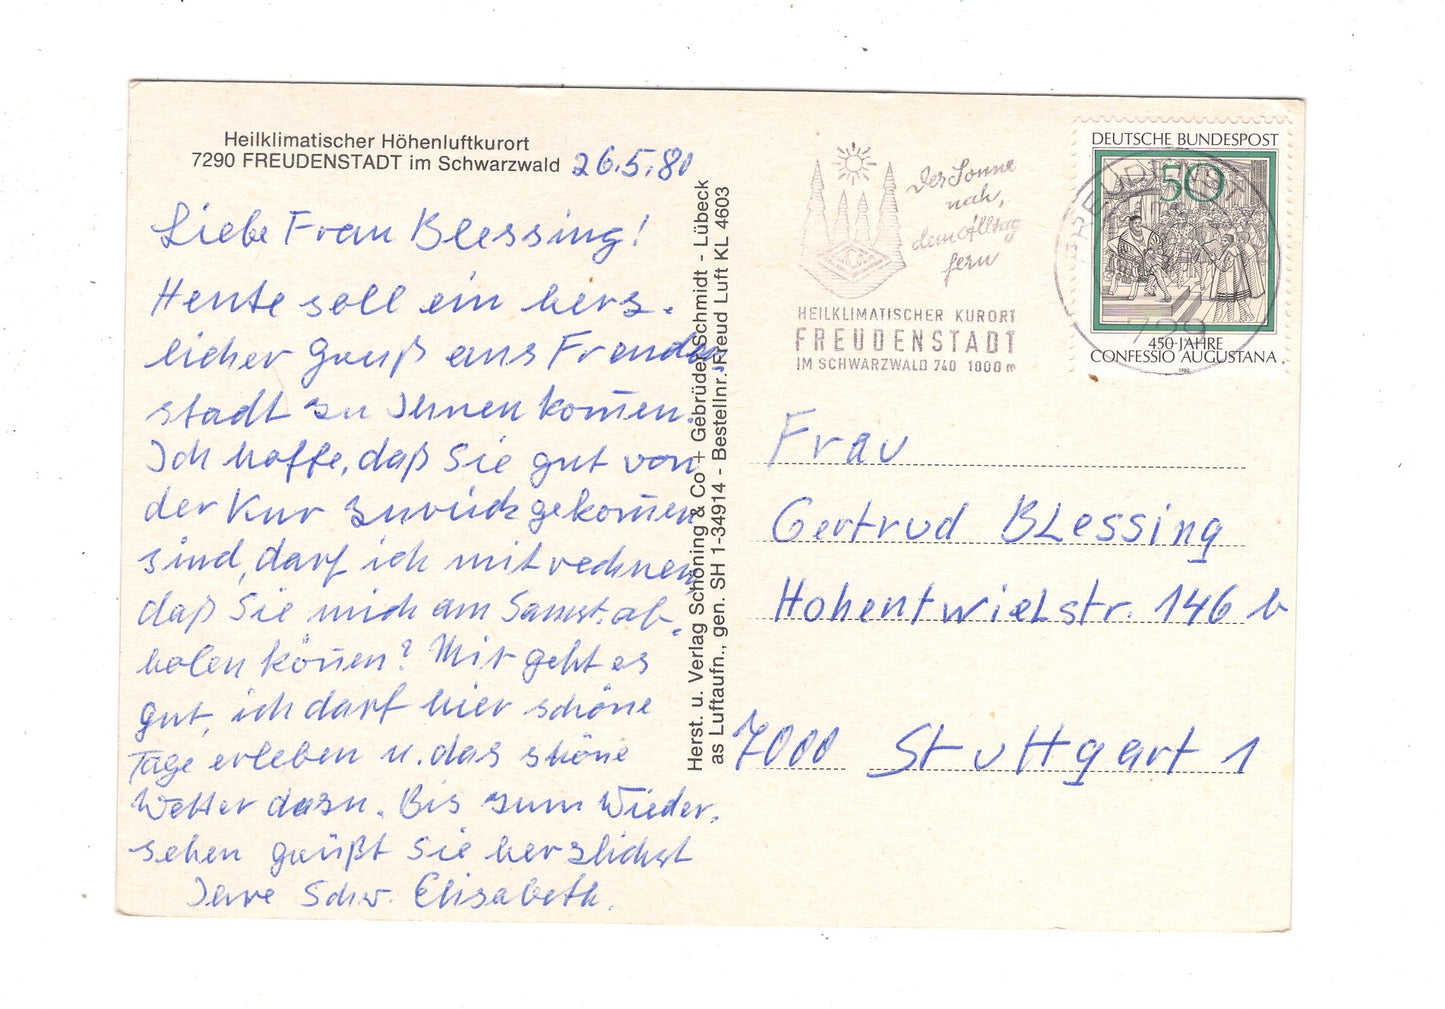 Heilklimatischer Höhenluftkurort
7290 FREUDENSTADT im Schwarzwald 26.5.80
Liebe Frau Blessing!
Heute soll ein herz-
licher Gruß aus Freuden-
stadt zu Ihnen kom̅en.
Ich hoffe, daß Sie gut von
der Kur zurück gekom̅en
sind, darf ich mit rechnen,
daß Sie mich am Samst. ab-
holen kön̅en? Mir geht es
gut, ich darf hier schöne
Tage erleben u. das schöne
Wetter dazu. Bis zum Wieder-
sehen grüßt Sie herzlichst
Ihre Schw. Elisabeth.
Herst. u. Verlag Schöning & Co + Gebrüder Schmidt - Lübeck
as Luftaufn., gen. SH 1-34914 - Bestellnr. Freud Luft KL 4603
Der Sonne
nah,
dem Alltag
fern
HEILKLIMATISCHER KURORT
FREUDENSTADT
IM SCHWARZWALD 740 1000 m
DEUTSCHE BUNDESPOST
50
450 JAHRE
CONFESSIO AUGUSTANA
1980
FREUDENSTADT
729
Frau
Gertrud Blessing
Hohentwielstr. 146 b
7000 Stuttgart 1